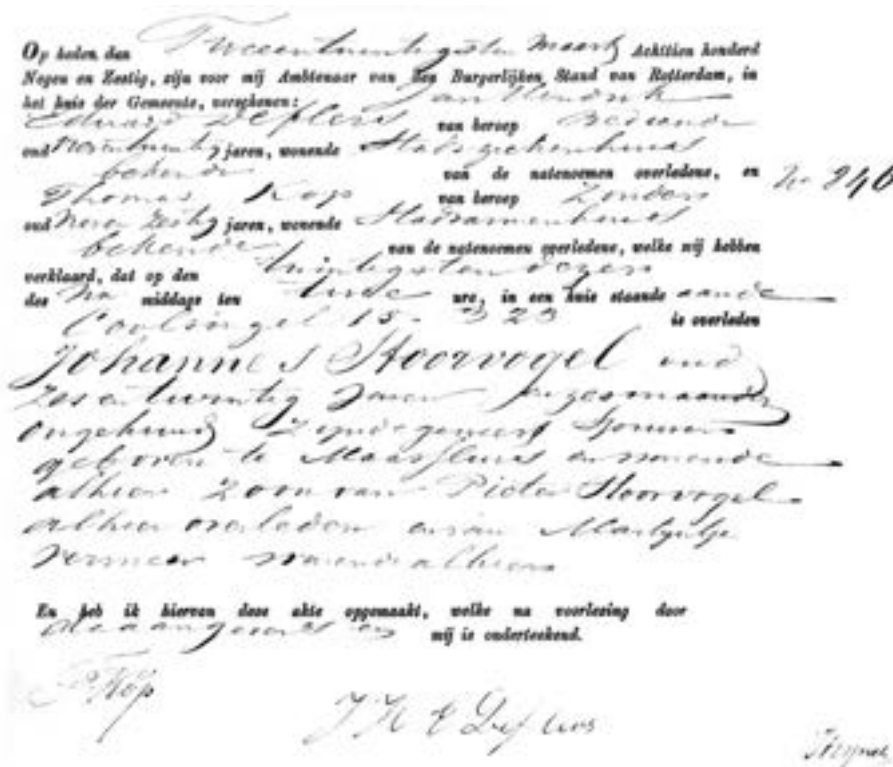 Op heden den Tweeentwintigsten Maart Achttien honderd
Negen en Zestig, zijn voor mij Ambtenaar van den Burgerlijken Stand van Rotterdam, in
het huis der Gemeente, verschenen: Jan Hendrik
Eduard Deflers van beroep Bediende
oud jaren, wonende Stadsziekenhuis
bekende van de natenoemen overledene, en No 946
Thomas Kop van beroep Zonder
oud jaren, wonende Stadsarmenhuis
bekende van de natenoemen overledene, welke mij hebben
verklaard, dat op den twintigsten dezer
des Na middags ten ure, in een huis staande aande
Coolsingel 15. 323 is overleden
Johannes Stoorvogel oud
Zes en twintig Jaren maanden
ongehuwd Zijnde geweest
geboren te Maassluis en wonende
alhier Zoon van Pieter Stoorvogel
alhier overleden en van Maartje
Vermeer wonende alhier
En heb ik hiervan deze akte opgemaakt, welke na voorlezing door
de aangevers en mij is onderteekend.
Kop
J H E Deflers